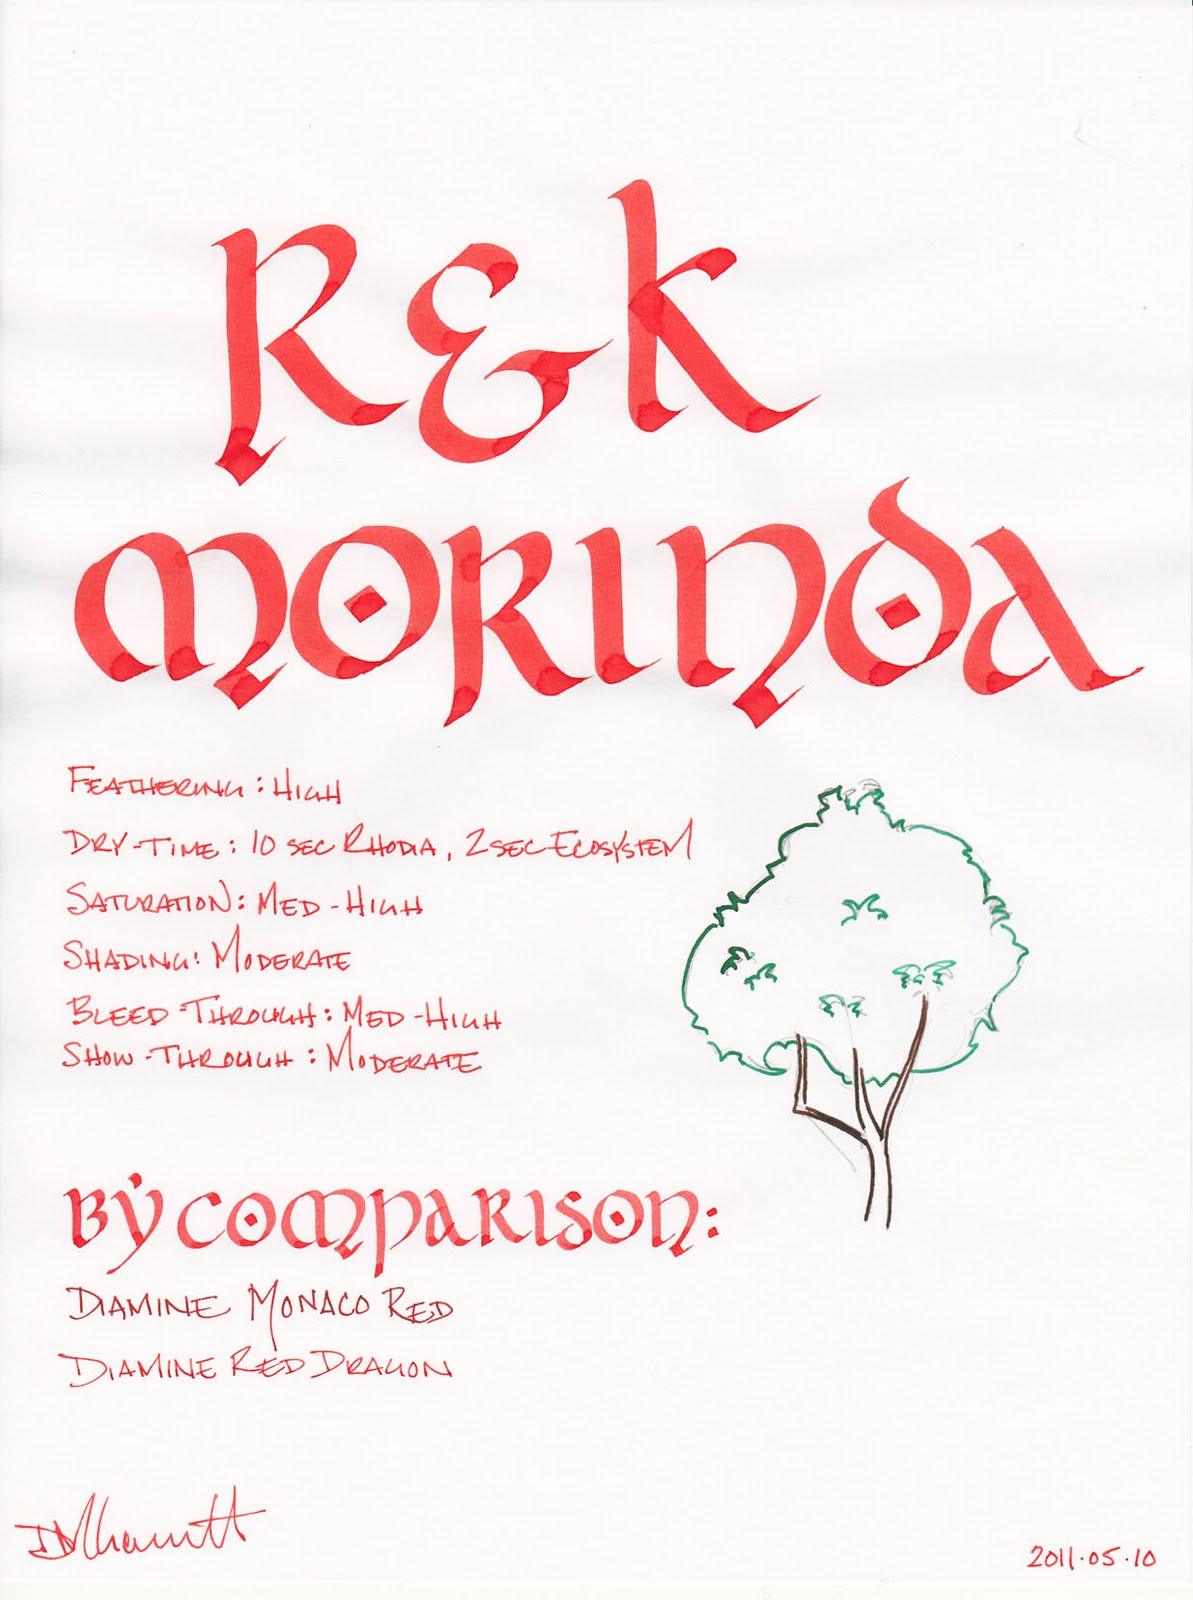 R & K
MORINDA
FEATHERING: HIGH
DRY-TIME: 10 SEC RHODIA, 2 SEC ECOSYSTEM
SATURATION: MED-HIGH
SHADING: MODERATE
BLEED-THROUGH: MED-HIGH
SHOW-THROUGH: MODERATE
BY COMPARISON:
DIAMINE MONACO RED
DIAMINE RED DRAGON
2011.05.10